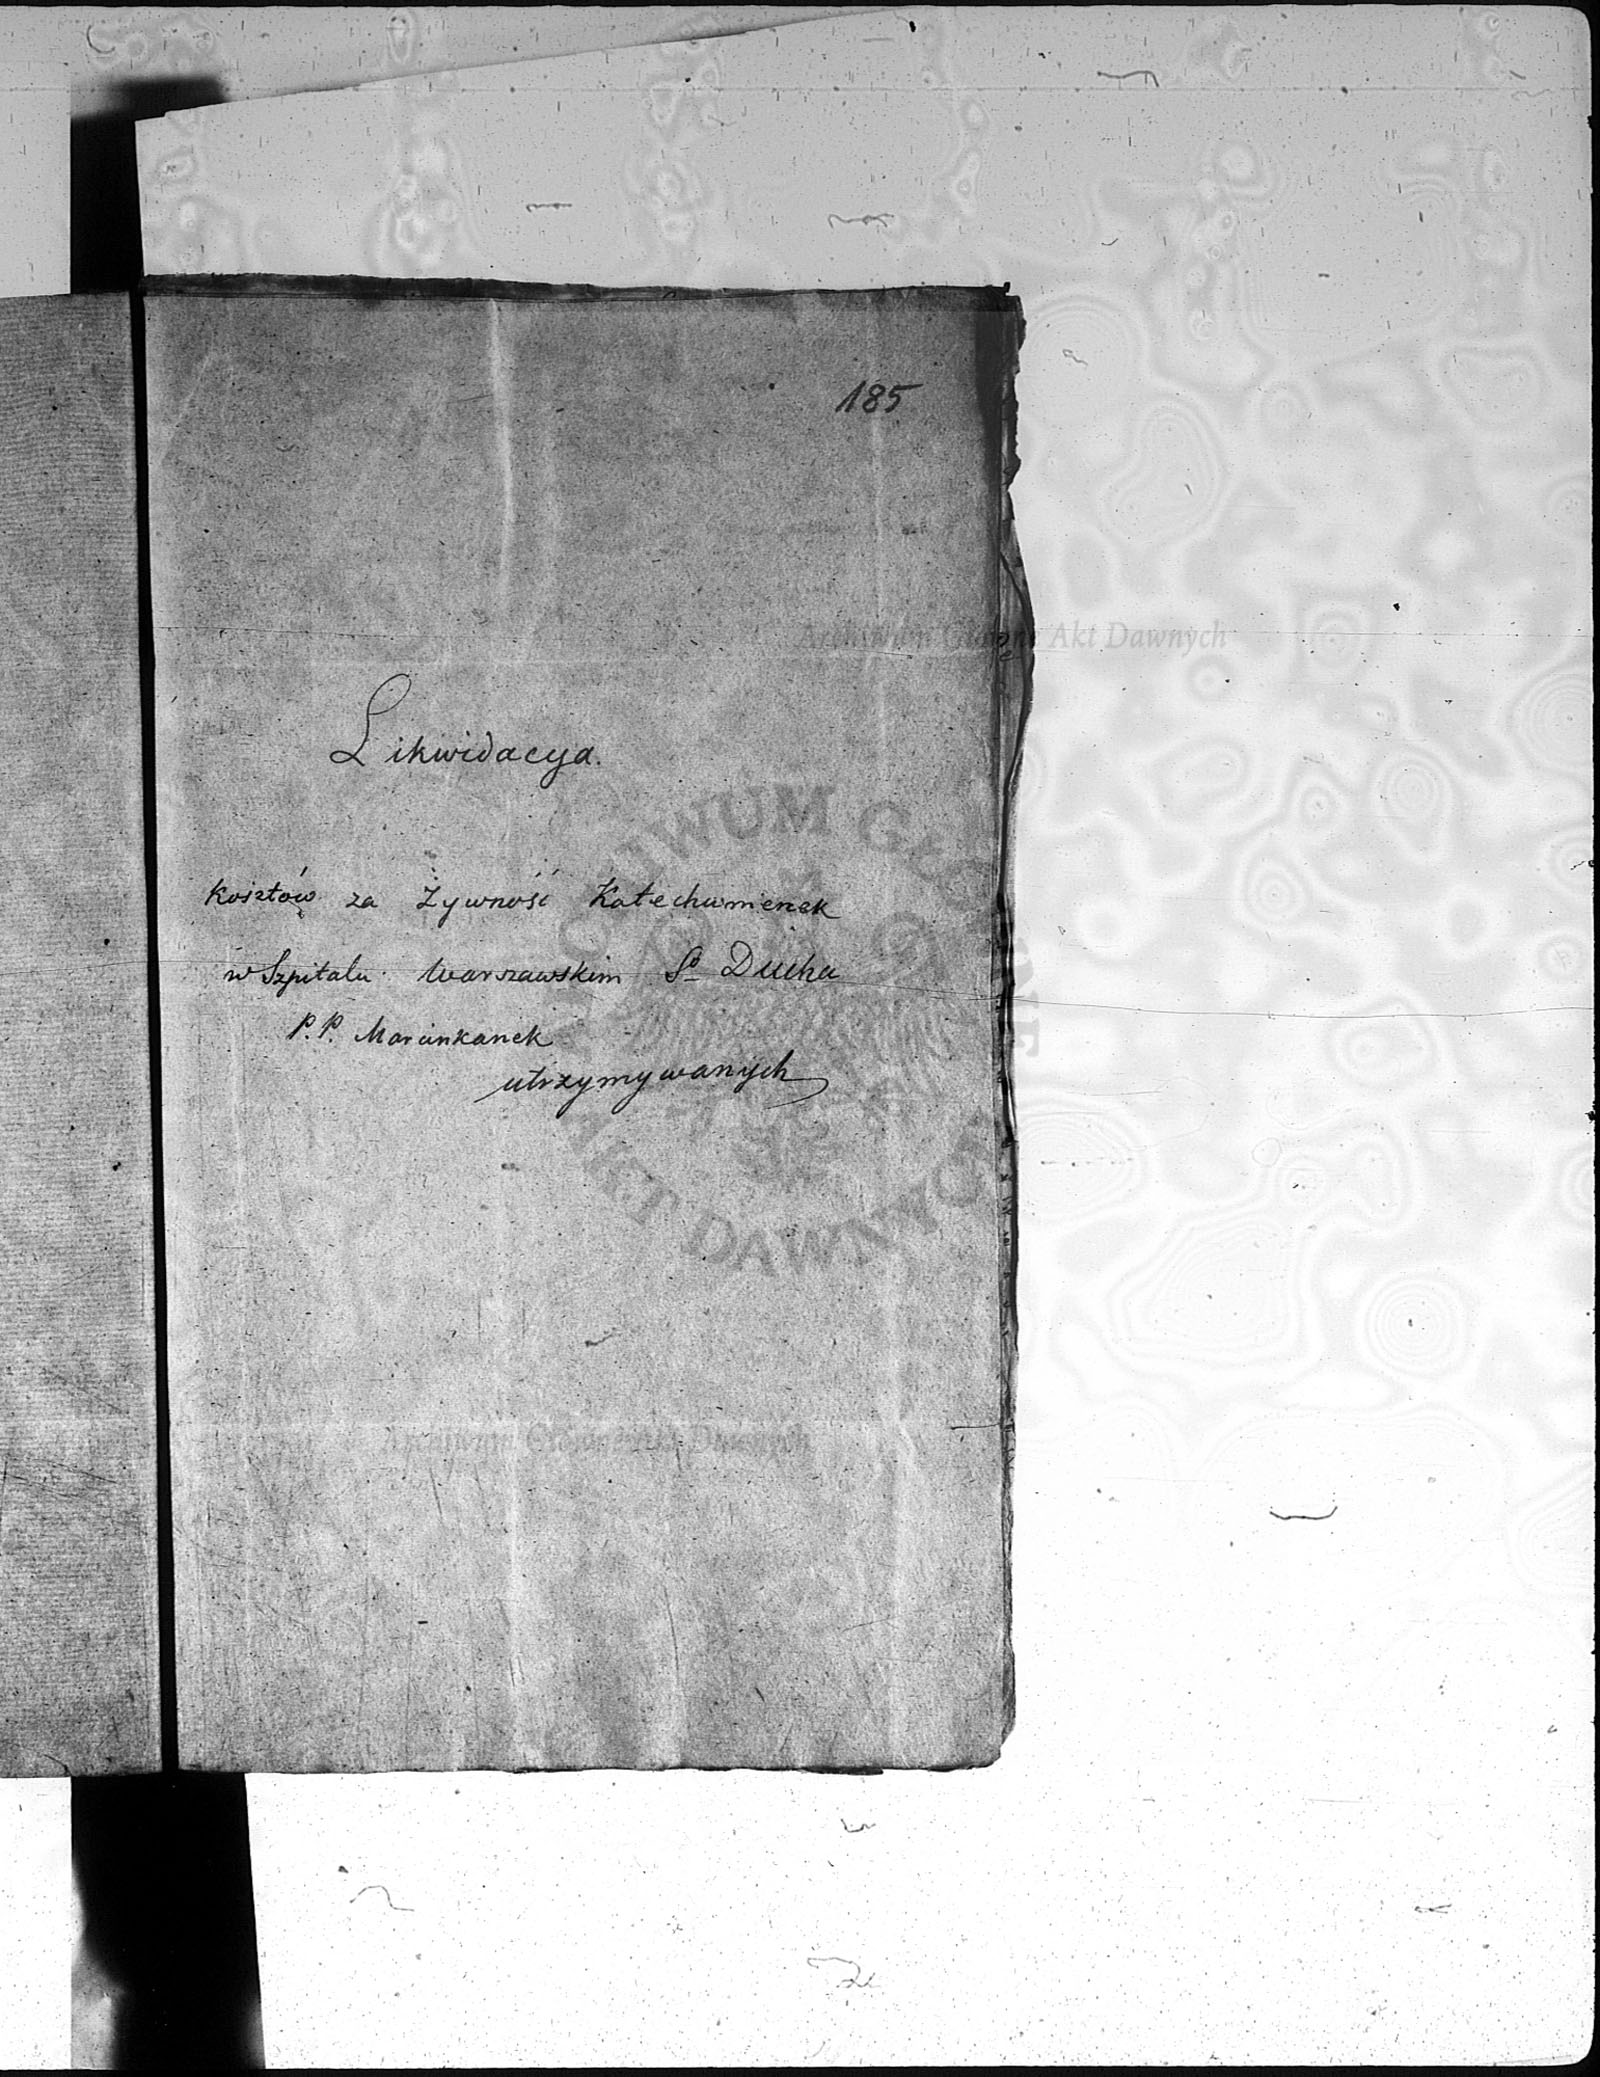 185
Archiwum Główne Akt Dawnych
Likwidacya.
Kosztów za Żywność Katechumenek
w Szpitalu Warszawskim Sº Ducha
P. P. Marcinkanek
utrzymywanych
ARCHIWUM GŁÓWNE AKT DAWNYCH
Archiwum Główne Akt Dawnych